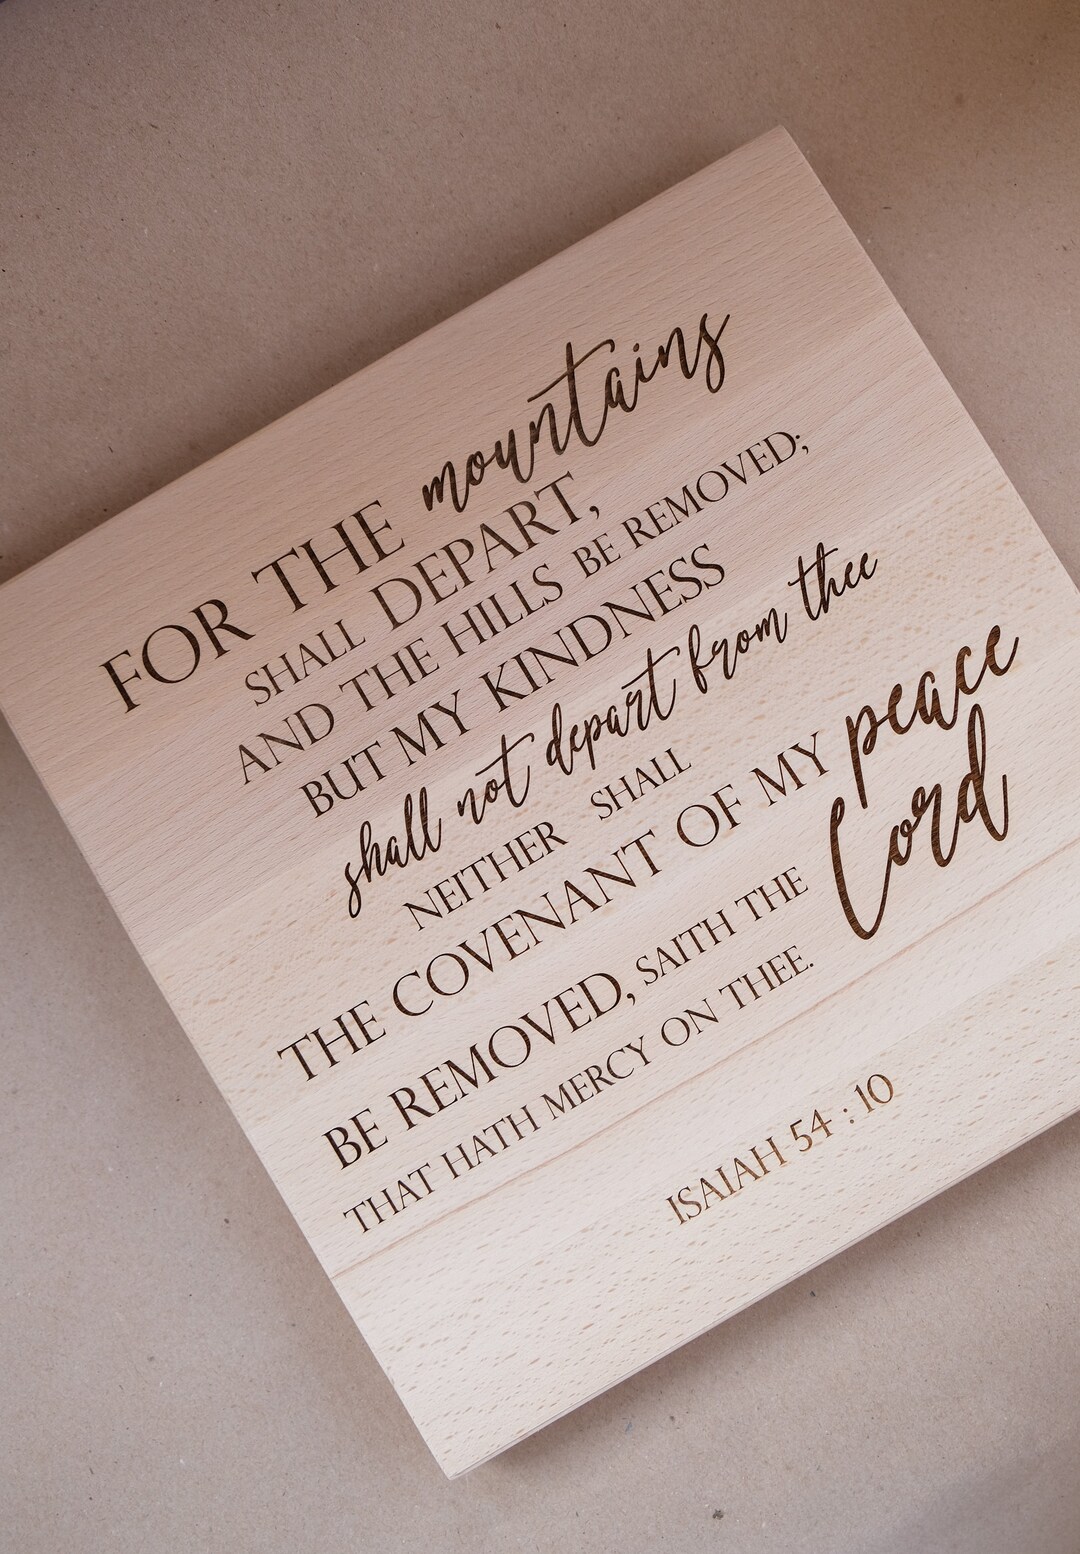 FOR THE mountains
SHALL DEPART,
AND THE HILLS BE REMOVED;
BUT MY KINDNESS
shall not depart from thee
NEITHER SHALL
THE COVENANT OF MY peace
BE REMOVED, SAITH THE Lord
THAT HATH MERCY ON THEE.
ISAIAH 54 : 10